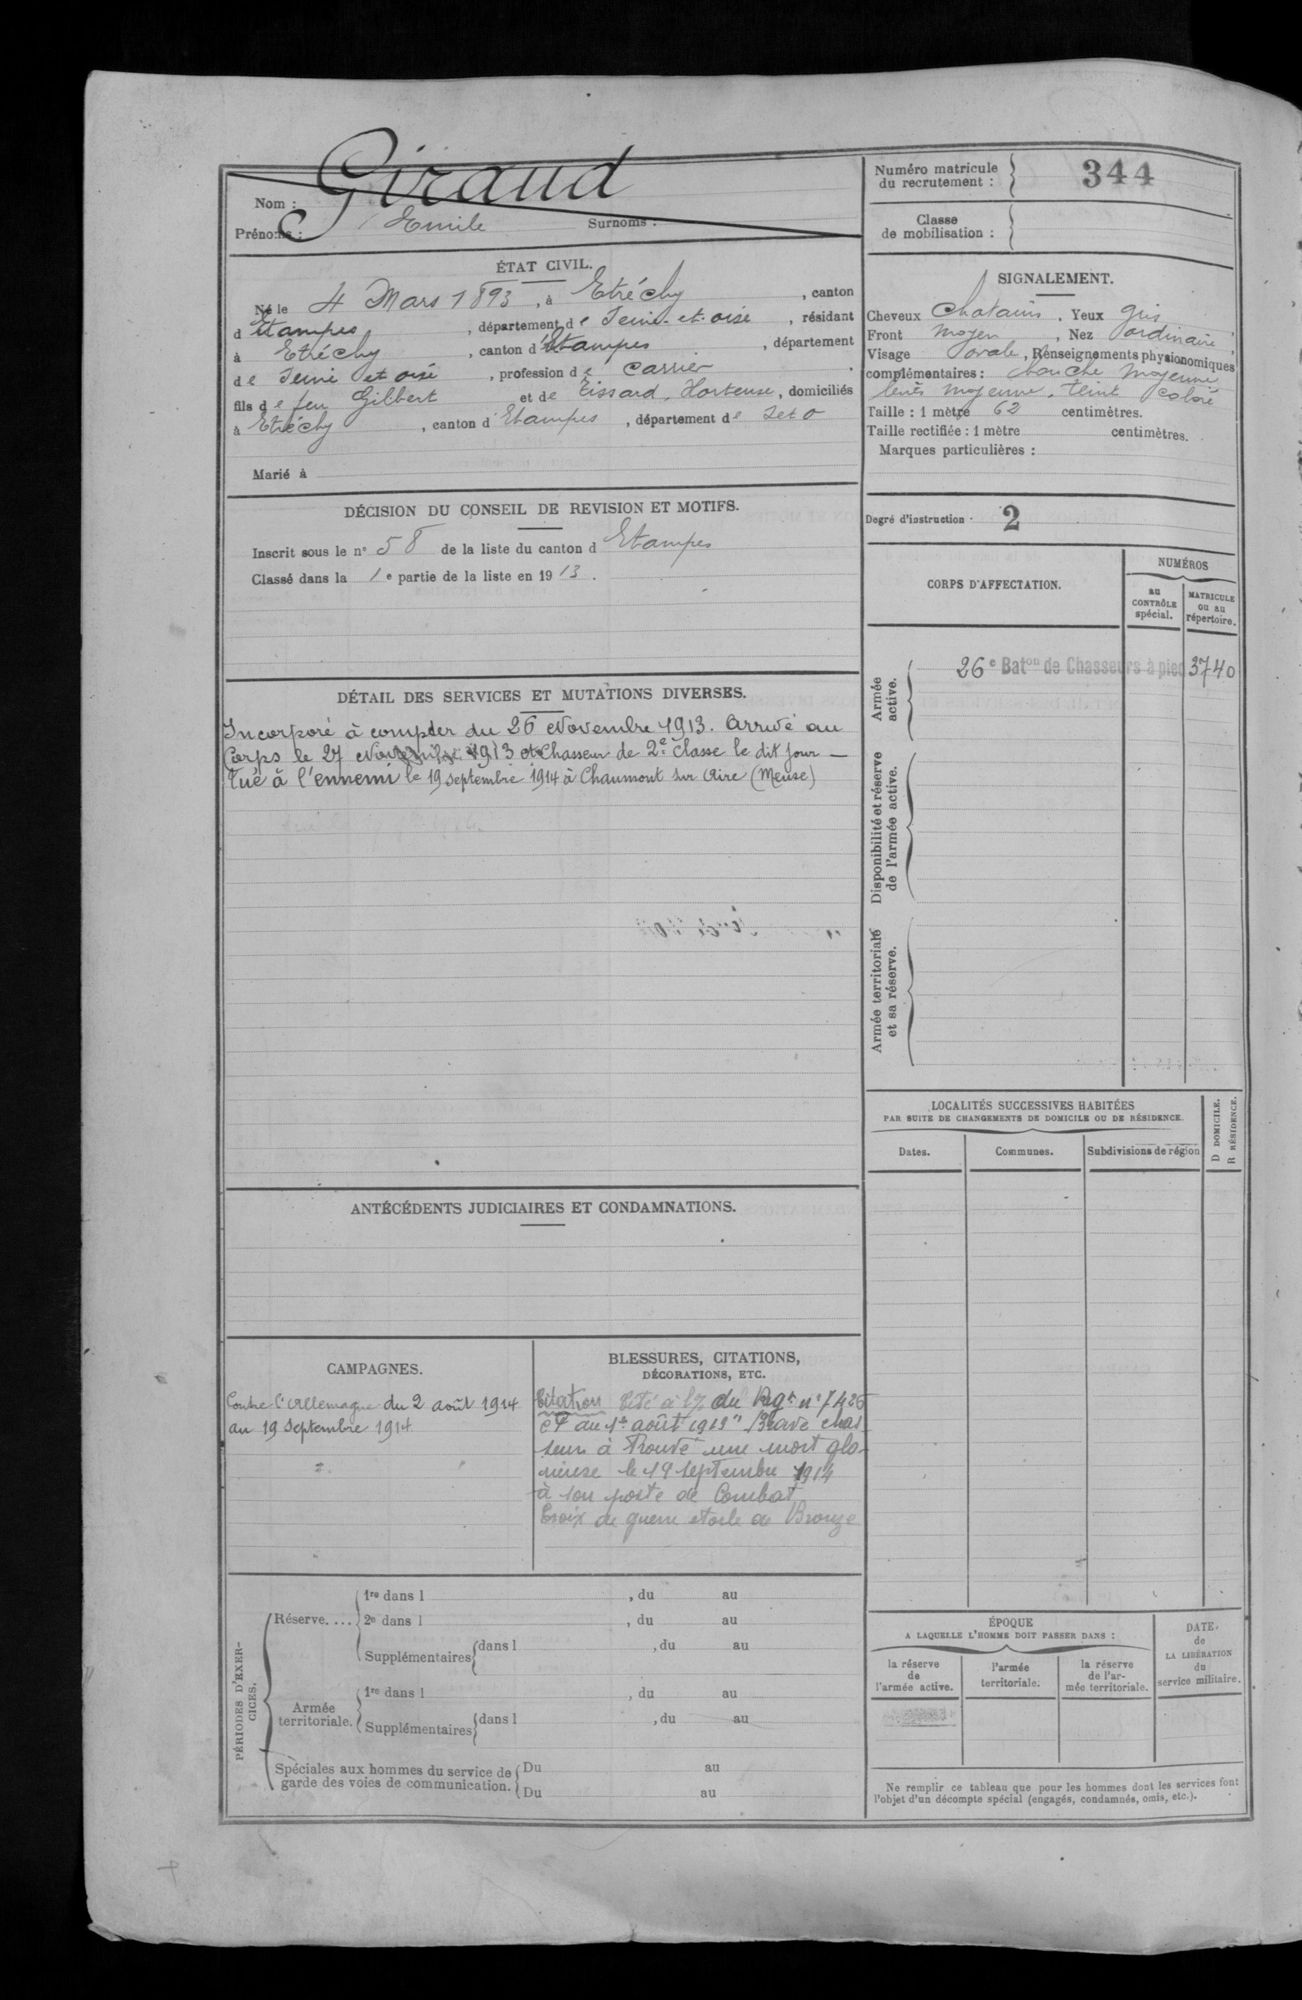 Giraud
Nom :
Prénoms : Emile Surnoms :
Numéro matricule
du recrutement : 344
Classe
de mobilisation :
ÉTAT CIVIL.
Né le 4 Mars 1893, à Etréchy, canton
d'Etampes, département de Seine-et-oise, résidant
à Etréchy, canton d'Etampes, département
de Seine et oise, profession de carrier
fils de feu Gilbert et de Tissard, Hortense, domiciliés
à Etréchy, canton d'Etampes, département de S et O
Marié à
SIGNALEMENT.
Cheveux Chatains, Yeux gris
Front moyen, Nez ordinaire,
Visage ovale, Renseignements physionomiques
complémentaires : bouche moyenne
teint coloré
Taille : 1 mètre 62 centimètres.
Taille rectifiée : 1 mètre centimètres.
Marques particulières :
Degré d'instruction : 2
DÉCISION DU CONSEIL DE REVISION ET MOTIFS.
Inscrit sous le n° 58 de la liste du canton d'Etampes
Classé dans la 1e partie de la liste en 1913.
CORPS D'AFFECTATION.
NUMÉROS
au
CONTRÔLE
spécial.
MATRICULE
ou au
répertoire.
Armée
active.
26e Baton de Chasseurs à pied 3740
Disponibilité et réserve
de l'armée active.
Armée territoriale
et sa réserve.
DÉTAIL DES SERVICES ET MUTATIONS DIVERSES.
Incorporé à compter du 26 Novembre 1913. Arrivé au
Corps le 27 Novembre 1913 et Chasseur de 2e classe le dit jour —
Tué à l'ennemi le 19 septembre 1914 à Chaumont sur Aire (Meuse)
LOCALITÉS SUCCESSIVES HABITÉES
PAR SUITE DE CHANGEMENTS DE DOMICILE OU DE RÉSIDENCE.
D DOMICILE.
R RÉSIDENCE.
Dates. Communes. Subdivisions de région
ANTÉCÉDENTS JUDICIAIRES ET CONDAMNATIONS.
CAMPAGNES.
Contre l'Allemagne du 2 août 1914
au 19 Septembre 1914
BLESSURES, CITATIONS,
DÉCORATIONS, ETC.
Citation Cité à l'O du Rgt n° 7426
au 1er août 1919 "Brave chas
seur à Trouvé une mort glo-
rieuse le 19 septembre 1914
à son poste de Combat
Croix de guerre etoile de Bronze
PÉRIODES D'EXER-
CICES.
Réserve.... 1re dans l , du au
2e dans l , du au
Supplémentaires dans l , du au
Armée
territoriale. 1re dans l , du au
Supplémentaires dans l , du au
Spéciales aux hommes du service de
garde des voies de communication. Du au
Du au
ÉPOQUE
A LAQUELLE L'HOMME DOIT PASSER DANS :
la réserve
de
l'armée active.
l'armée
territoriale.
la réserve
de l'ar-
mée territoriale.
DATE
de
LA LIBÉRATION
du
service militaire.
Ne remplir ce tableau que pour les hommes dont les services font
l'objet d'un décompte spécial (engagés, condamnés, omis, etc.).